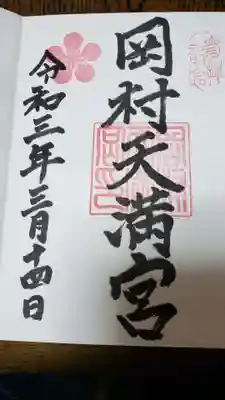 岡村天満宮
令和三年三月十四日